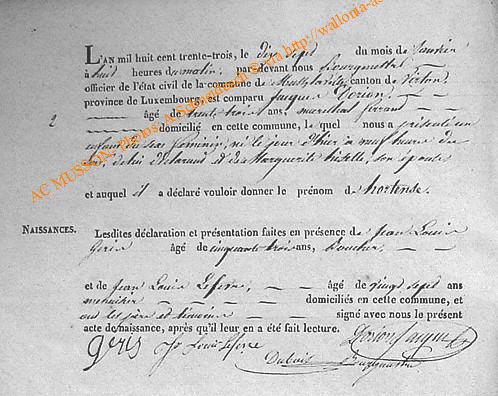 L'AN mil huit cent trente-trois, le dix sept du mois de Janvier
à huit heures du matin, par devant nous Bourguette
officier de l'état civil de la commune de canton de Virton,
province de Luxembourg, est comparu Jacques Dorion
2 âgé de trente trois ans, marechal ferrant
domicilié en cette commune, le quel nous a présenté un
enfant du sexe feminin, né le jour d'hier à neuf heures du
de lui déclarant et de Marguerite son épouse
et auquel il a déclaré vouloir donner le prénom de hortense.
NAISSANCES. Lesdites déclaration et présentation faites en présence de Jean Louis
Geris âgé de cinquante trois ans,
et de Jean Louis Lefevre âgé de vingt sept ans
domiciliés en cette commune, et
ont les père et témoins signé avec nous le présent
acte de naissance, après qu'il leur en a été fait lecture. Dorion Jacque
geris Jn Louis lefevre
AC MUSSON, photos A.Schmitz and S. via http://wallonia-as